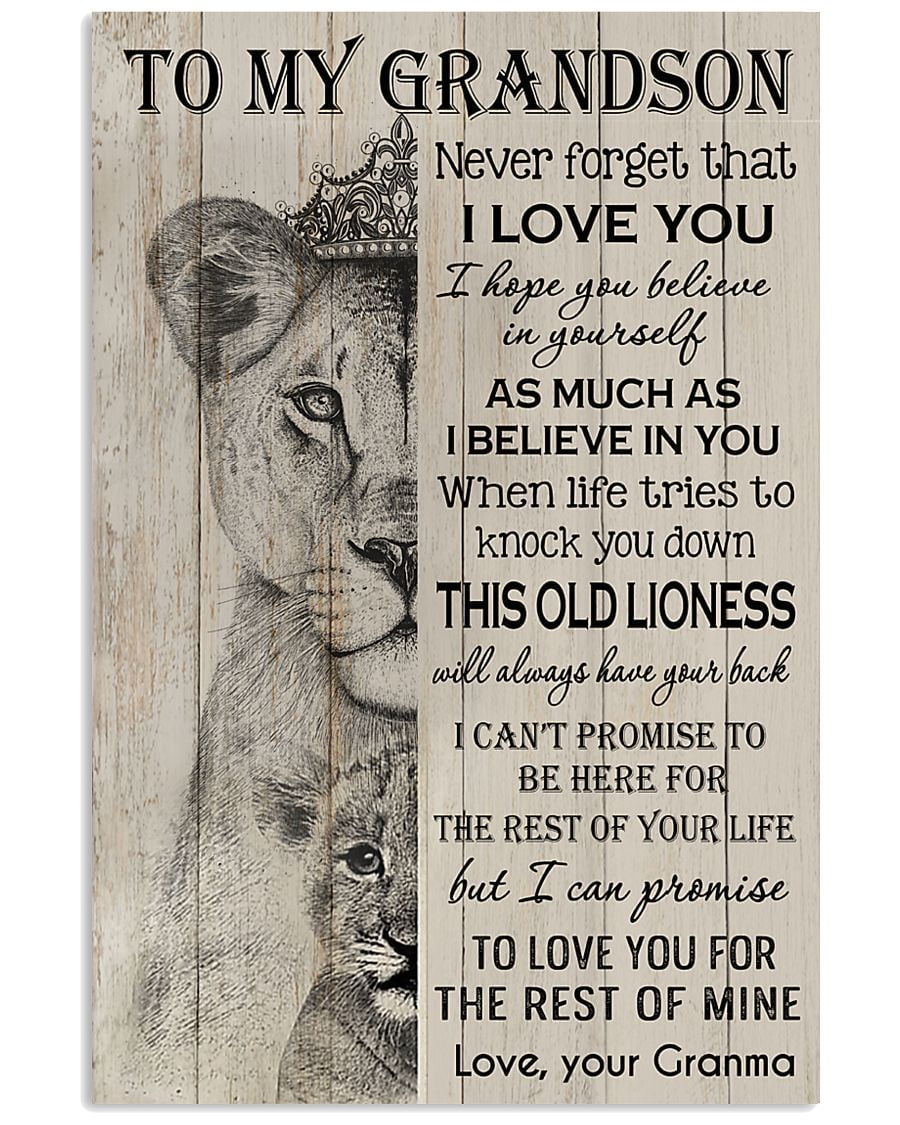 TO MY GRANDSON
Never forget that
I LOVE YOU
I hope you believe
in yourself
AS MUCH AS
I BELIEVE IN YOU
When life tries to
knock you down
THIS OLD LIONESS
will always have your back
I CAN'T PROMISE TO
BE HERE FOR
THE REST OF YOUR LIFE
but I can promise
TO LOVE YOU FOR
THE REST OF MINE
Love, your Granma